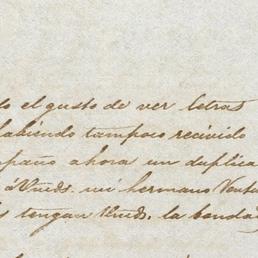 o el gusto de ver letras
habiendo tampoco recivido
ahora un duplica
á Vmds. mi hermano Ventu
tengan Vmds. la bondad